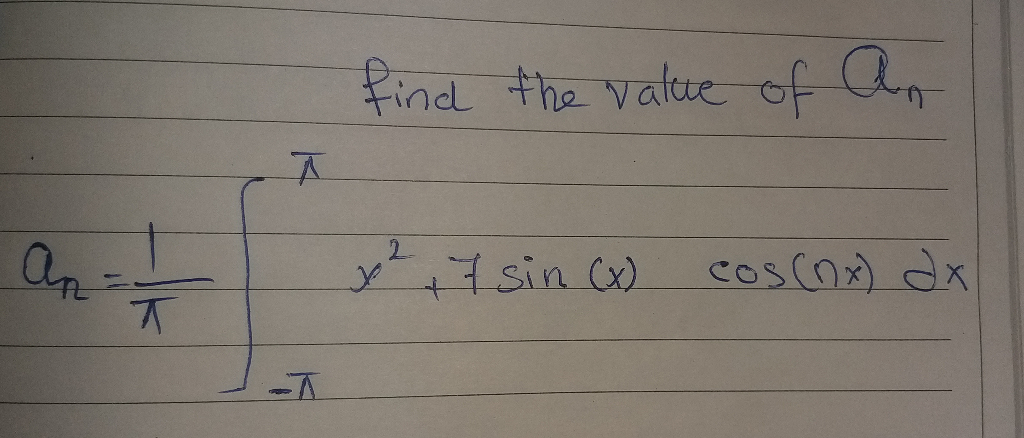 find the value of aₙ
aₙ = 1/π ∫_{-π}^{π} x² + 7 sin (x) cos(nx) dx